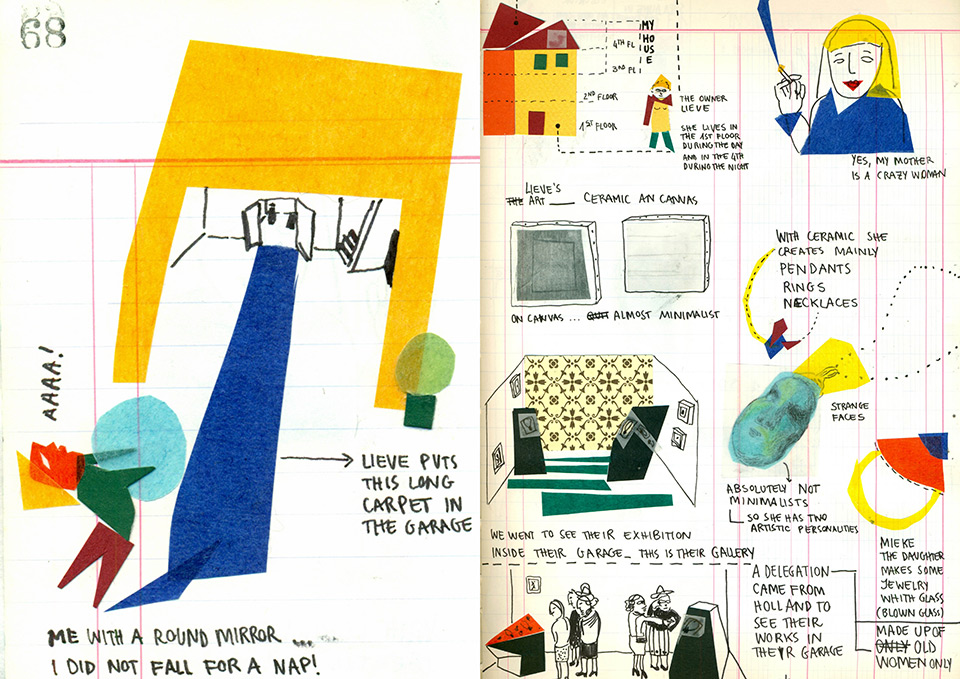 68
AAAA!
LIEVE PUTS
THIS LONG
CARPET IN
THE GARAGE
ME WITH A ROUND MIRROR ...
I DID NOT FALL FOR A NAP!
MY
HOUSE
4TH FL
3RD FL
2ND FLOOR
1ST FLOOR
THE OWNER
LIEVE
SHE LIVES IN
THE 1ST FLOOR
DURING THE DAY
AND IN THE 4TH
DURING THE NIGHT
YES, MY MOTHER
IS A CRAZY WOMAN
LIEVE'S
THE ART ___ CERAMIC AN CANVAS
ON CANVAS ... ALMOST MINIMALIST
WITH CERAMIC SHE
CREATES MAINLY
PENDANTS
RINGS
NECKLACES
STRANGE
FACES
ABSOLUTELY NOT
MINIMALISTS
SO SHE HAS TWO
ARTISTIC PERSONALITIES
WE WENT TO SEE THEIR EXHIBITION
INSIDE THEIR GARAGE_ THIS IS THEIR GALLERY
A DELEGATION
CAME FROM
HOLLAND TO
SEE THEIR
WORKS IN
THEIR GARAGE
MIEKE
THE DAUGHTER
MAKES SOME
JEWELRY
WHITH GLASS
(BLOWN GLASS)
MADE UP OF
ONLY OLD
WOMEN ONLY